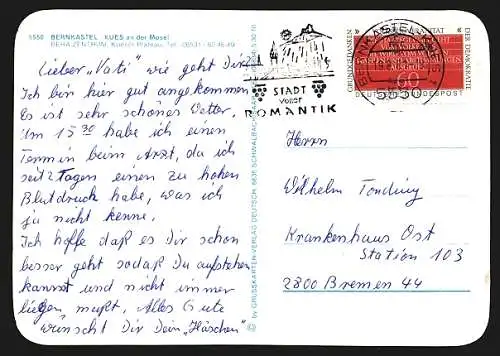 5550 BERNKASTEL - KUES an der Mosel
REHA-ZENTRUM, Kueser Plateau, Tel. 06531 -
Lieber „Vati" wie geht Dir?
Ich bin hier gut angekommen
Es ist sehr schönes Wetter.
um 15 30 habe ich einen
Termin beim Arzt, da ich
seit 2 Tagen einen zu hohen
Blutdruck habe, was ich
ja nicht kenne.
Ich hoffe daß es Dir schon
besser geht sodaß Du aufstehen
kannst und nicht immer
liegen mußt. Alles Gute
wünscht Dir Dein „Häschen"
© by GRUSSKARTEN-VERLAG DEUTSCH
STADT
voller
ROMANTIK
BERNKASTEL-KUES
5550
GRUNDGEDANKEN
DER DEMOKRATIE
60
DEUTSCHE BUNDESPOST
Herrn
Wilhelm Tonding
Krankenhaus Ost
Station 103
2800 Bremen 44